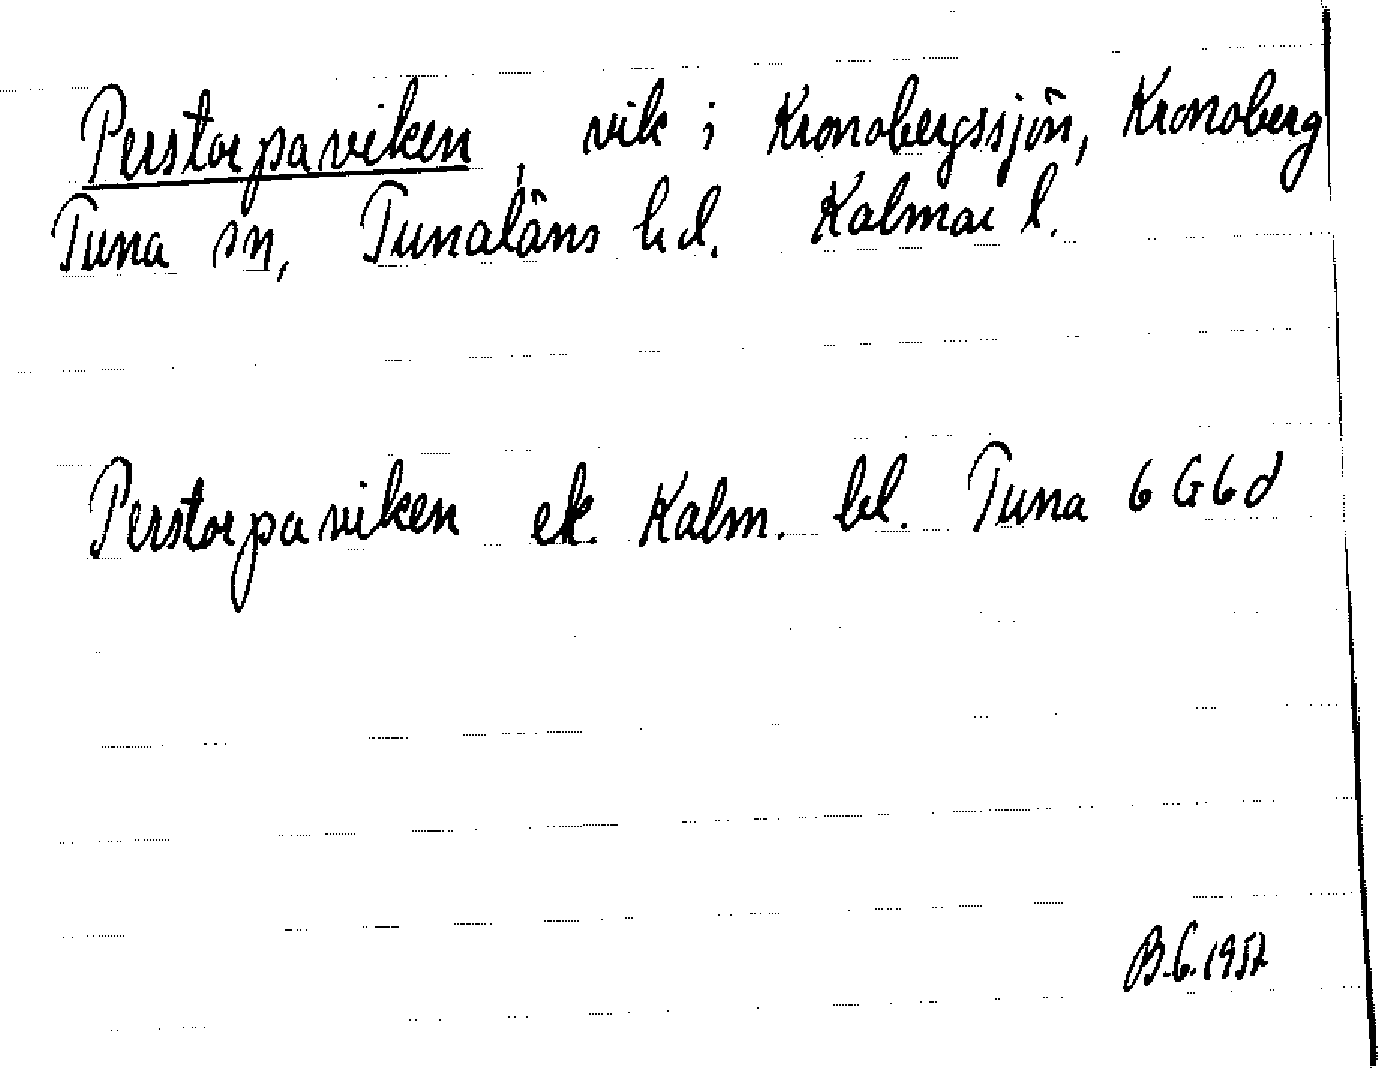 Perstorpaviken, vik i Kronobergssjön, Kronoberg
Tuna sn, Tunaläns hd. Kalmar l.
Perstorpaviken ek. Kalm. bl. Tuna 6 G 6 d
B.G. 1952